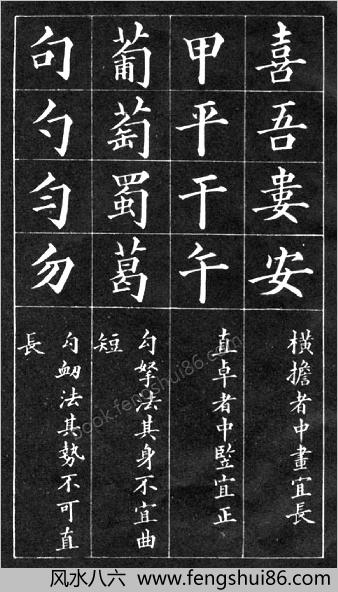 喜吾婁安
橫擔者中畫宜長
甲平干午
直卓者中竪宜正
葡萄蜀葛
勾拏法其身不宜曲
短
句勺勻勿
勾衂法其勢不可直
長
book.fengshui86.com
风水八六 www.fengshui86.com